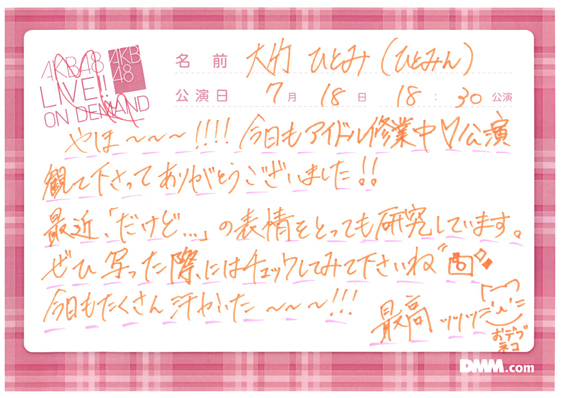 AKB48
LIVE!!
ON DEMAND
AKB
48
名前 大竹 ひとみ (ひとみん)
公演日 7月 18日 18:30公演
やほ～～～!!!! 今日もアイドル修業中♡公演
観て下さってありがとうございました!!
最近、「だけど…」の表情をとっても研究しています。
ぜひ 写った際にはチェックしてみて下さいね
今日もたくさん汗かいた～～～!!!
最高ッッッ
おデブ
ネコ
DMM.com